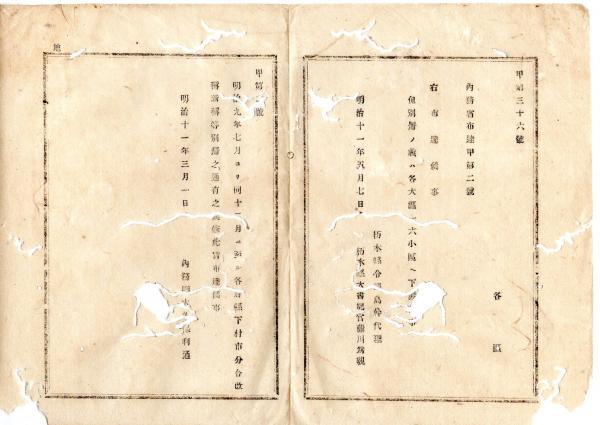 甲第三十六號
各區
內務省布達甲第二號
右布達候事
但別冊ノ義ハ各大區 六小區ヘ下 事
明治十一年五月七日
栃木縣令鍋島幹代理
栃木縣大書記官藤川爲親
甲第 號
明治九年七月ヨリ同十二月 各府縣下村市分合改
稱 別冊之通有之 此旨布達候事
明治十一年三月一日
內務 大 利通
地